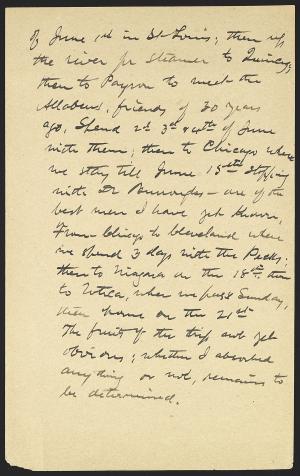 of June 1st in St Louis; then up
the river per steamer to Quincy;
then to Payson to meet the
friends of 30 years
ago, Spend 2d 3d & 4th of June
with them; then to Chicago where
we stay till June 15th stopping
with Dr Burroughs – one of the
best men I have yet known,
From Chicago to Cleveland where
we spend 3 days with the Pecks;
then to Niagara on the 18th, then
to Utica, where we pass Sunday,
then home on the 21st
The fruit of the trip not yet
obvious; whether I absorbed
anything or not, remains to
be determined.